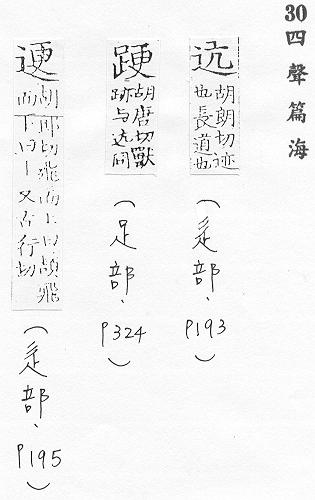 30四聲篇海
迒
胡朗切迹
也長道也
（辵部、P193）
胡唐切獸
跡与迒同
（足部、P324）
胡郎切飛而上曰頡飛
而下曰丨又行切
（辵部、P195）